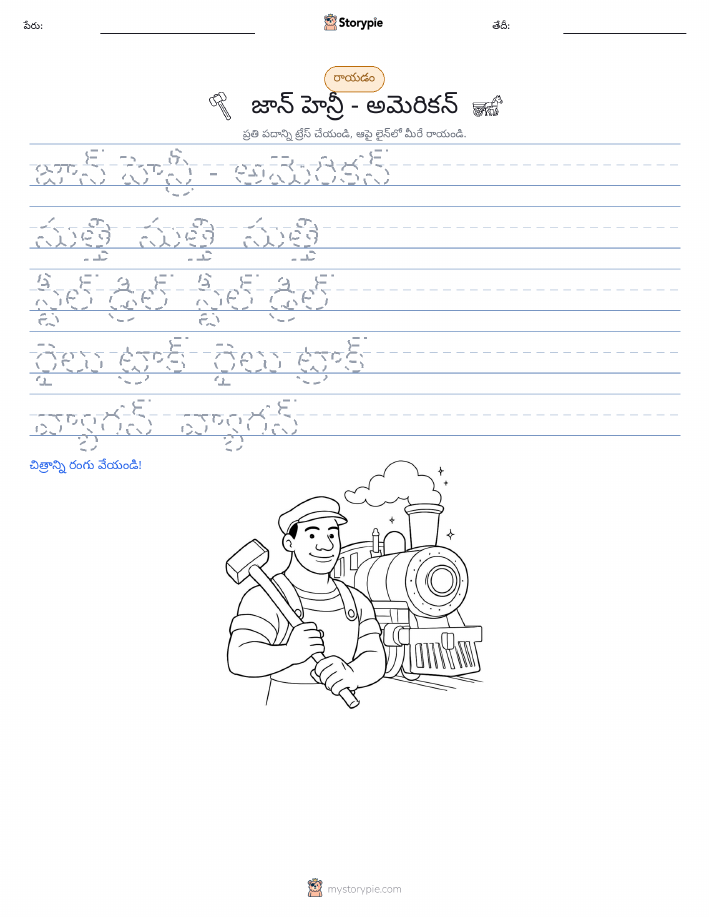 పేరు:
Storypie
తేదీ:
రాయడం
జాన్ హెన్రీ - అమెరికన్
ప్రతి పదాన్ని ట్రేస్ చేయండి, ఆపై లైన్‌లో మీరే రాయండి.
జాన్ హెన్రీ - అమెరికన్
సుత్తి సుత్తి సుత్తి
స్టీల్ డ్రిల్ స్టీల్ డ్రిల్
రైలు ట్రాక్ రైలు ట్రాక్
వ్యాగన్ వ్యాగన్
చిత్రాన్ని రంగు వేయండి!
mystorypie.com